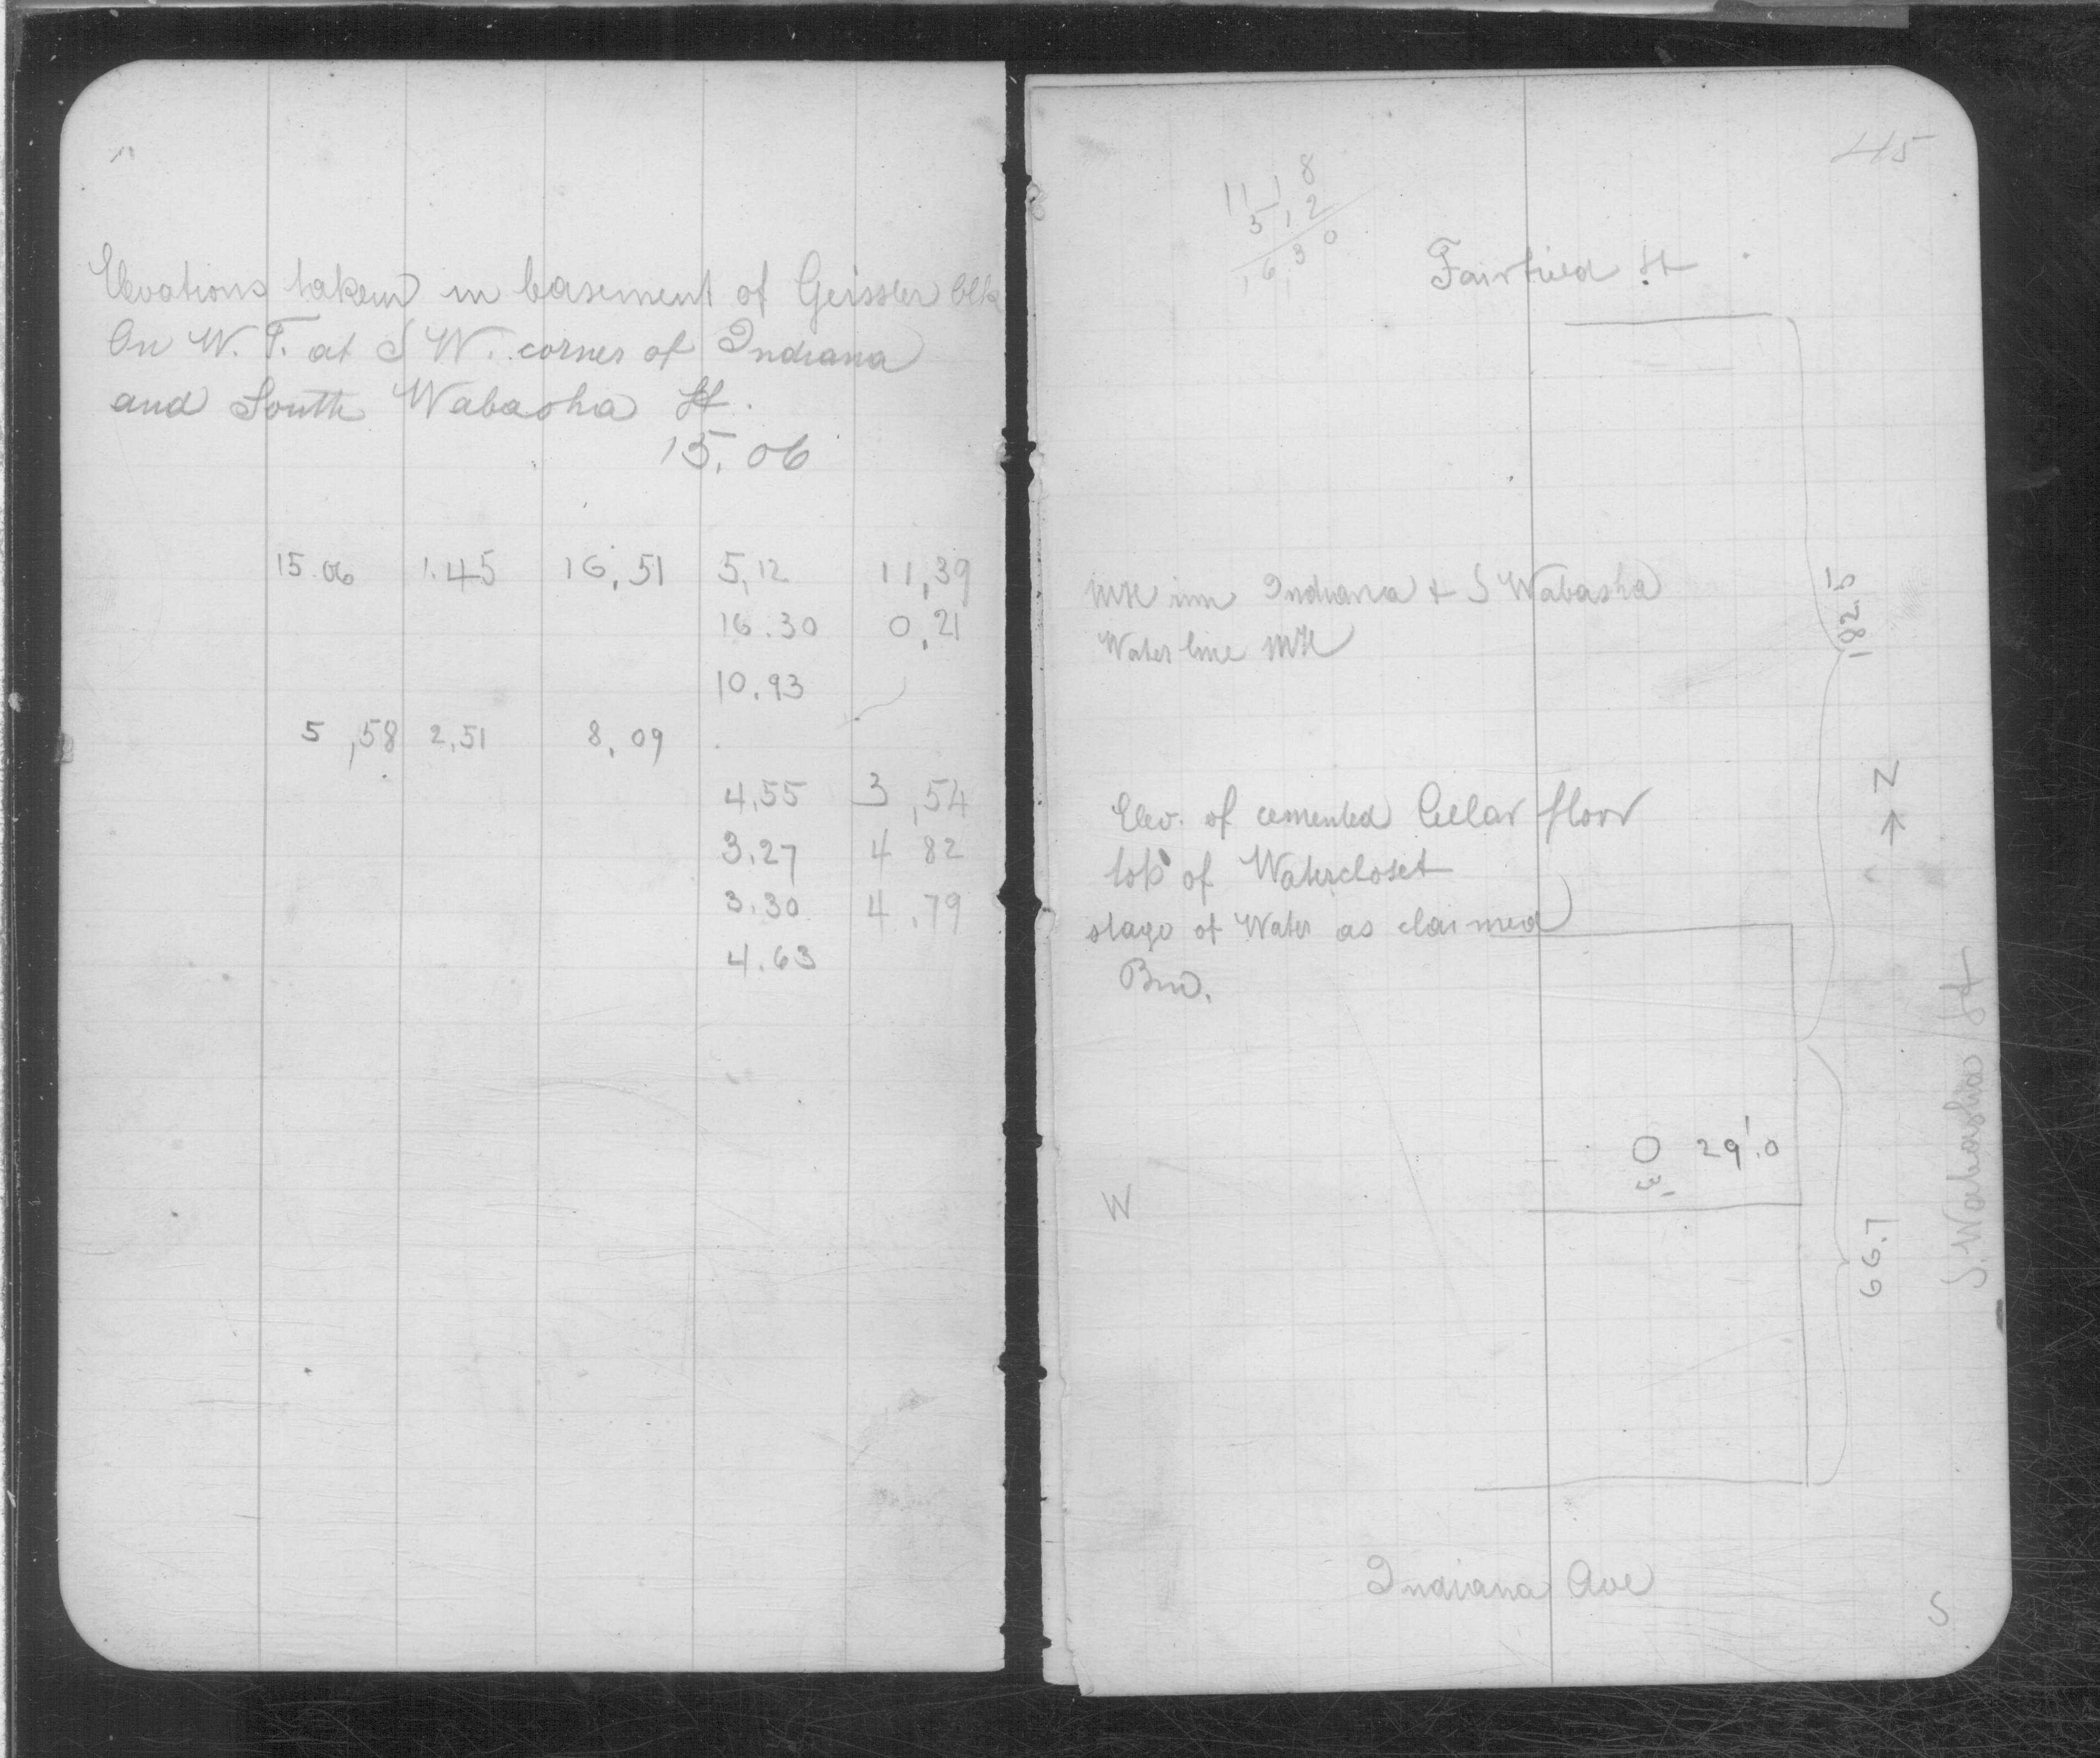 Elevations taken in basement of Geissler Blk
On W. T. at S W. corner of Indiana
and South Wabasha St.
15.06
15.06 1.45 16,51 5,12 11,39
16.30 0,21
10.93
5,58 2,51 8,09
4,55 3,54
3.27 4 82
3.30 4.79
4.63
45
11 18
5,12
16,30
Fairfield St
MH rim Indiana + S Wabasha
Water line MH
182.5
N
Elev. of cemented Cellar floor
top of Watercloset
stage of Water as claimed
Bm.
S. Wabasha St
29'.0
3'
W
66.7
Indiana Ave
S